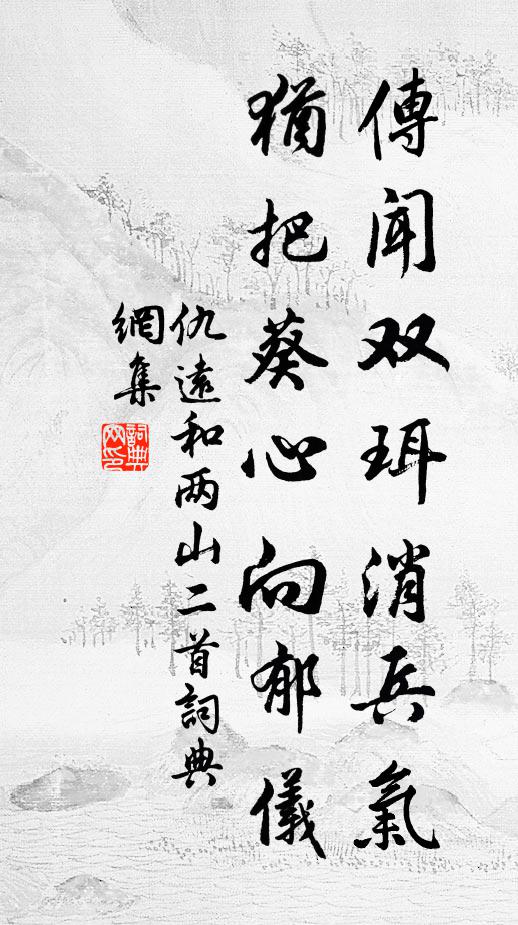 傳聞双珥消兵氣
猶把葵心向郁儀
仇遠和两山二首詞典
網集
詞典
网印